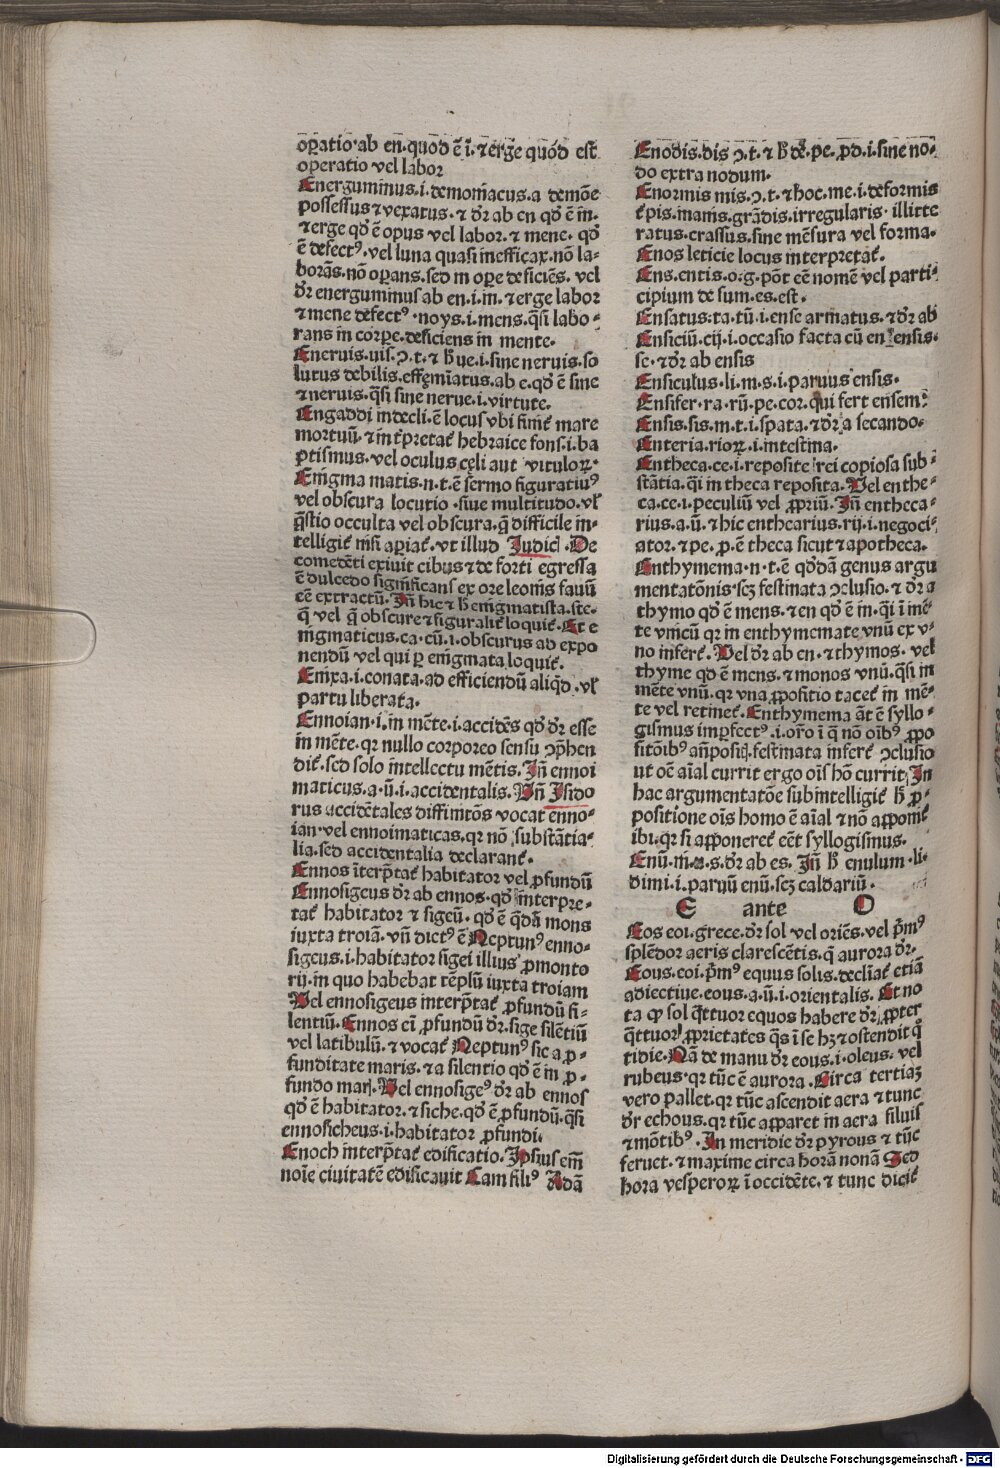 oꝑatio·ab en·quod ē ī·⁊ erge quod est
operatio vel labor
Energuminus.i.demoniacus.a demōe
possessus ⁊ vexatus·⁊ dr̄ ab en qd̓ ē in·
⁊ erge qd̓ ē opus vel labor·⁊ mene· qd̓
ē defectꝰ·vel luna quasi inefficax·nō la-
borās·nō oꝑans·sed in oꝑe deficiēs· vel
dr̄ energuminus ab en·i·in·⁊ erge labor
⁊ mene defectꝰ·noys·i·mens·q̄si labo-
rans in corꝑe·deficiens in mente·
Eneruis·uis·ↄ·t·⁊ h̄ ue·i·sine neruis·so
lutus debilis·effeminatus·ab e·qd̓ ē sine
⁊ neruis·q̄si sine nerue·i·virtute·
Engaddi indecli·ē locus vbi finit̄ mare
mortuū·⁊ int̓pretat̄ hebraice fons·i·ba
ptismus·vel oculus celi aut vituloꝝ·
Enigma matis·n·t·ē sermo figuratiuꝰ
vel obscura locutio·siue multitudo·vl̓
q̄stio occulta vel obscura·q̄ difficile in-
telligit̄ nisi aꝑiat̄·vt illud Judic̄·De
comedēti exiuit cibus ⁊ de forti egressa
ē dulcedo significans ex ore leonis fauū
eē extractū·Jn̄ hic ⁊ h̄ enigmatista·ste·
q̄ vel q̄ obscure ⁊ figuralit̄ loquit̄·Et e
nigmaticus·ca·cū·i·obscurus ad expo
nendū vel qui ꝑ enigmata loquit̄·
Enixa·i·conata·ad efficiendū aliqd̓·vl̓
partu liberata·
Ennoian·i·in mēte·i·accidēs qd̓ dr̄ esse
in mēte·qr nullo corporeo sensu ↄp̄hen
dit̄·sed solo intellectu mētis·Jn̄ ennoi
maticus·a·ū·i·accidentalis·Vn̄ Jsido
rus accidētales diffinitōs vocat enno-
ian·vel ennoimaticas·qr nō substātia-
lia·sed accidentalia declarant̄·
Ennos īterp̄tat̄ habitator vel ꝓfundū
Ennosigeus dr̄ ab ennos·qd̓ interpre-
tat̄ habitator ⁊ sigeū·qd̓ ē q̄dā mons
iuxta troiā·vn̄ dictꝰ ē Neptunꝰ enno-
sigeus·i·habitator sigei illius ꝓmonto
rij·in quo habebat tēplū iuxta troiam
Vel ennosigeus interp̄tat̄ ꝓfundū si-
lentiū·Ennos eī ꝓfundū dr̄·sige silētiū
vel latibulū·⁊ vocat̄ Neptunꝰ sic a ꝓ-
funditate maris·⁊ a silentio qd̓ ē in ꝓ-
fundo mar̄·Vel ennosigeꝰ dr̄ ab ennos
qd̓ ē habitator·⁊ siche·qd̓ ē ꝓfundū·q̄si
ennosicheus·i·habitator ꝓfundi·
Enoch interp̄tat̄ edificatio·Jpsius em̄
noīe ciuitatē edificauit Cain filiꝰ Adā
Enodis·dis ↄ·t·⁊ h̄ de·pe·ꝓd·i·sine no-
do extra nodum·
Enormis mis·ↄ·t·⁊ hoc·me·i·deformis
inanis·grādis·irregularis·illitte
ratus·crassus·sine mēsura vel forma·
Enos leticie locus interpretat̄·
Ens·entis·o·g·pōt eē nomē vel parti-
cipium de sum·es·est·
Ensatus·ta·tū·i·ense armatus·⁊ dr̄ ab
Ensiciū·cij·i·occasio facta cū en ensis·
se·⁊ dr̄ ab ensis
Ensiculus·li·m·s·i·paruus ensis·
Ensifer·ra·rū·pe·cor·qui fert ensem·
Ensis·sis·m·t·i·spata·⁊ dr̄ a secando·
Enteria·rioꝝ·i·intestina·
Entheca·ce·i·reposite rei copiosa sub-
stātia·q̄i in theca reposita·Vel enthe-
ca·ce·i·peculiū vel ꝓpriū·Jn̄ entheca-
rius·a·ū·⁊ hic enthecarius·rij·i·negoci-
ator·⁊ pe·ꝓ·ē theca sicut ⁊ apotheca·
Enthymema·n·t·ē qd̓dā genus argu
mentatōnis·scꝫ festinata ↄclusio·⁊ dr̄ a
thymo qd̓ ē mens·⁊ en qd̓ ē in·q̄i ī mē-
te vnicū qr in enthymemate vnū ex v-
no infert̄·Vel dr̄ ab en·⁊ thymos· vel
thyme qd̓ ē mens·⁊ monos vnū·q̄si in
mēte vnū·qr vna ꝓpositio tacet̄ in mē-
te vel retinet̄·Enthymema āt ē syllo-
gismus imꝑfectꝰ·i·oro ī q̄ nō oībꝰ ꝓpo
sitōibꝰ an̄posiꝭ·festinata infert̄ ↄclusio
ut oē aīal currit ergo oīs hō currit·Jn
hac argumentatōe subintelligit̄ h̄ ꝓ-
positione oīs homo ē aīal ⁊ nō apponit̄
ibi·qr si apponeret̄ eēt syllogismus·
Enū·ni·s·dr̄ ab es· Jn̄ h̄ enulum·li·
dimi·i·paruū enū·scꝫ caldariū·
E ante O
Eos eoi·grece·dr̄ sol vel oriēs·vel p̄mꝰ
splēdor aeris clarescētis·q̄ aurora dr̄·
Eous·eoi·p̄mꝰ equus solis·declīat̄ etiā
adiectiue·eous·a·ū·i·orientalis·Et no
ta ꝙ sol q̄ttuor equos habere dr̄ ꝓpter
q̄ttuor ꝓprietates q̄s ī se hꝫ ⁊ ostendit q̊
tidie·Nā de manu dr̄ eous·i·oleus·vel
rubeus·qr tūc ē aurora·Circa tertiaꝫ
vero pallet·qr tūc ascendit aera ⁊ tunc
dr̄ echous·qr tūc apparet in aera siluis
⁊ mōtibꝰ·Jn meridie dr̄ pyrous ⁊ tūc
feruet·⁊ maxime circa horā nonā Sed
hora vesperoꝝ ī occidēte·⁊ tunc dicit̄
Digitalisierung gefördert durch die Deutsche Forschungsgemeinschaft - DFG